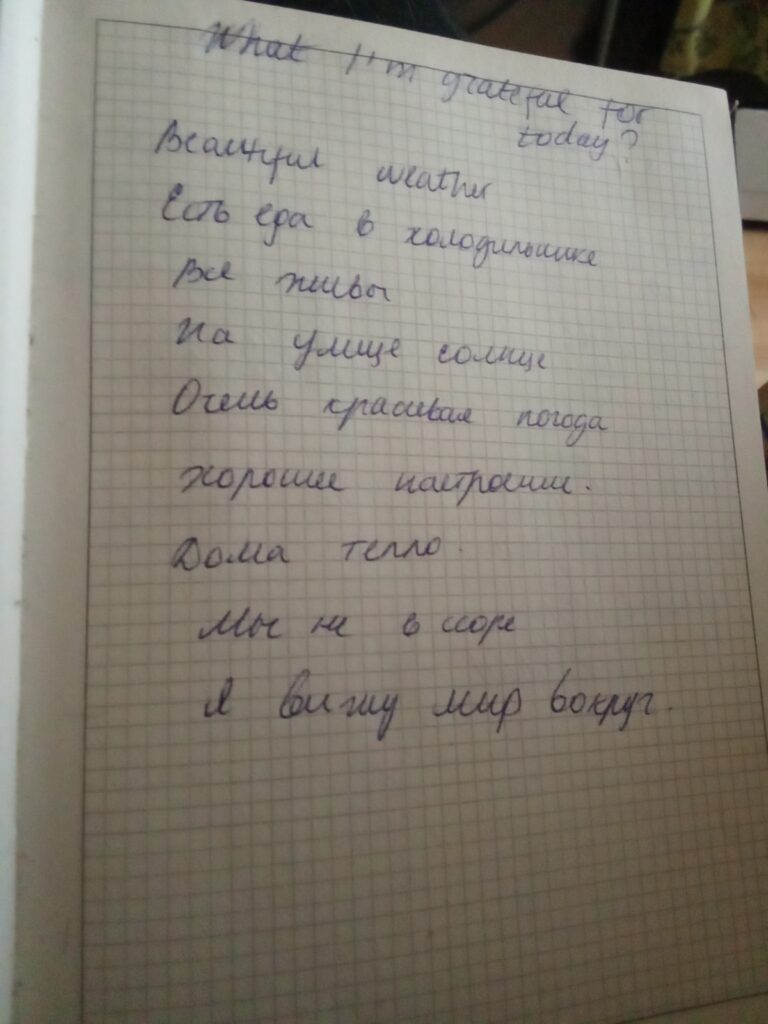 What I'm grateful for
today?
Beautiful weather
Есть еда в холодильнике
Все живы
На улице солнце
Очень красивая погода
Хорошее настроение.
Дома тепло.
Мы не в ссоре
Я вижу мир вокруг.